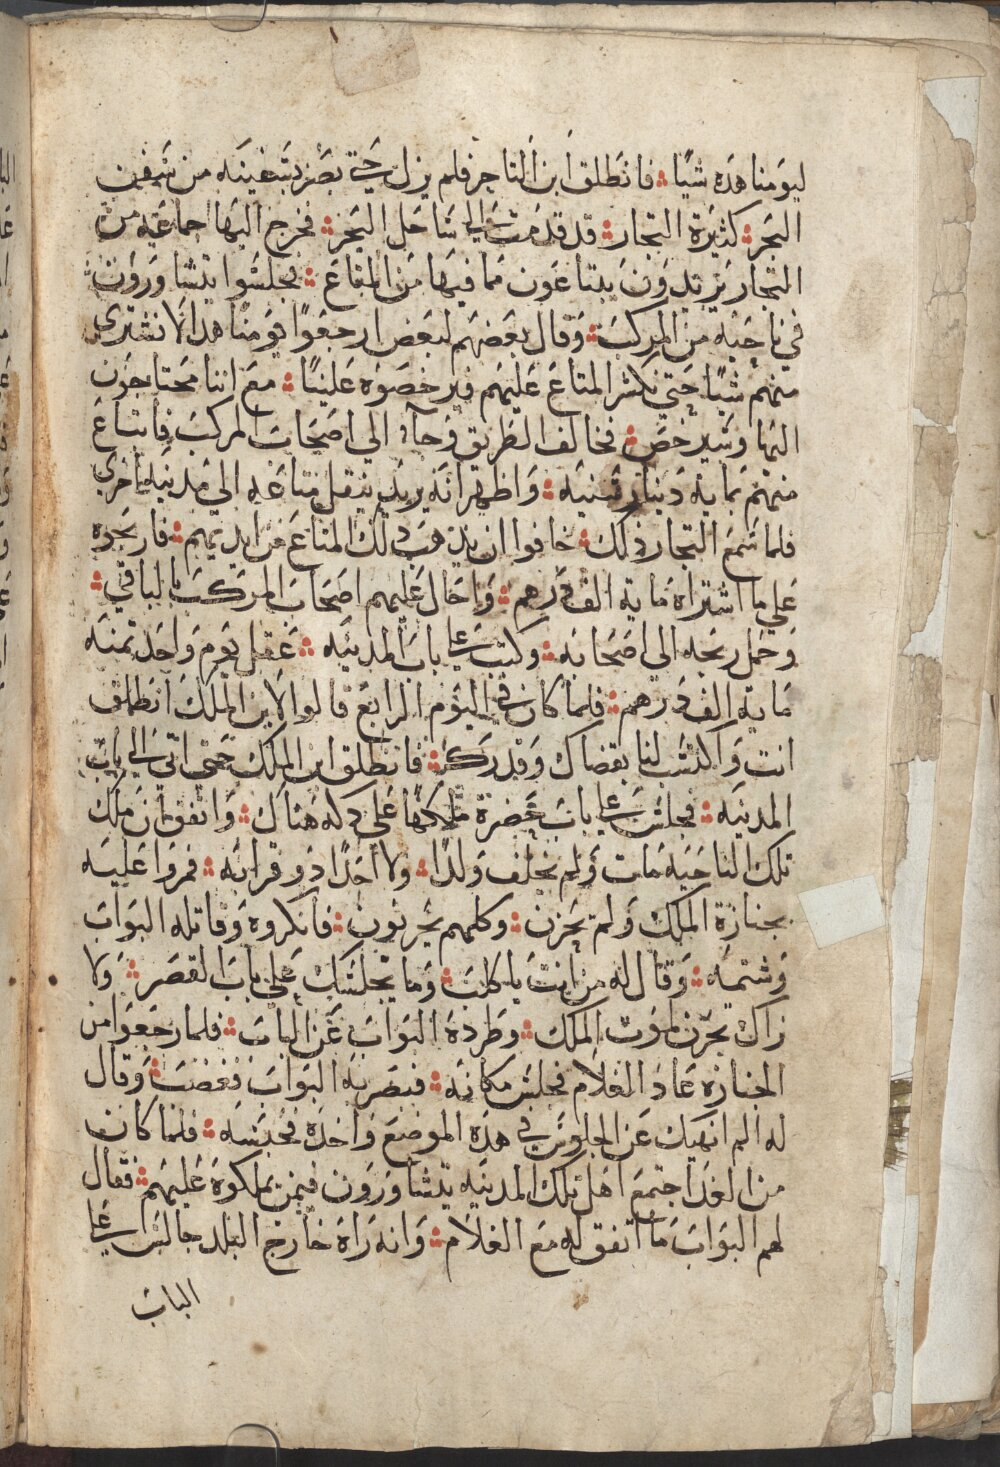 ليومنا هذه شيًا ؞ فانطلق ابن التاجر فلم يزل حتي بصر بسفينه من سفن
البحر ؞ كثيرة التجار ؞ قد قدمت الي ساحل البحر ؞ فخرج اليها جماعه من
التجار يريدون يبتاعون مما فيها من المتاع ؞ فجلسوا يتشاورون
في ناحيه من المركب ؞ وقال بعضهم لبعض ارجعوا يومنا هدا لا نشتري
منهم شيًا حتي نكسر المتاع عليهم فيرخصوه علينا ؞ مع اننا محتاجون
اليها وسيرخص ؞ فخالف الطريق وجآ الي اصحاب المركب فابتاع
منهم بمايه دينار نسيه ؞ واظهر انه يريد ينقل متاعه الي مدينه اخري
فلما سمع التجار ذلك ؞ خافوا ان يذهب ذلك المتاع من ايديهم ؞ فاربحوه
علي ما اشتراه مايه الف درهم ؞ واحال عليهم اصحاب المركب بالباقي ؞
وحمل ربحه الي اصحابه ؞ وكتب علي باب المدينه ؞ عقل يوم واحد ثمنه
مايه الف درهم ؞ فلما كان في اليوم الرابع قالوا لابن الملك انطلق
انت واكتسب لنا بقضاك وقدرك ؞ فانطلق ابن الملك حتي اتي الي باب
المدينه ؞ فجلس علي باب حضرة ملكها علي دكه هناك ؞ واتفق ان ملك
تلك الناحيه مات ولم يخلف ولدًا ؞ ولا احدًا ذو قرابه ؞ فمروا عليه
بجنازة الملك ولم يحزن ؞ وكلهم يحزنون ؞ فانكروه وقاتله البواب
وشتمه ؞ وقال له من انت يا كلب ؞ وما يجلسك علي باب القصر ؞ ولا
نراك تحزن لموت الملك ؞ وطرده البواب عن الباب ؞ فلما رجعوا من
الجنازه عاد الغلام فجلس مكانه ؞ فبصر به البواب فغضب ؞ وقال
له الم انهيك عن الجلوس في هذه الموضع واخذه فحبسه ؞ فلما كان
من الغد اجتمع اهل تلك المدينه يتشاورون فيمن يملكوه عليهم ؞ فقال
لهم البواب ما اتفق له مع الغلام ؞ وانه راه خارج البلد جالس علي
الباب